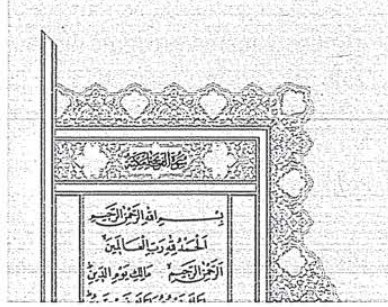 سورة الفاتحة
بسم الله الرحمن الرحيم
الحمد لله رب العالمين
الرحمن الرحيم مالك يوم الدين